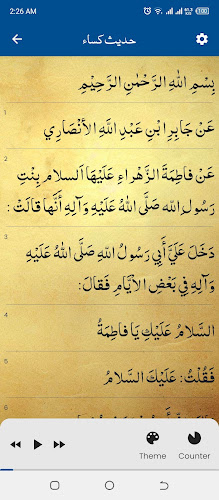 2:26 AM
حدیث کساء
بِسْمِ اللهِ الرَّحْمٰنِ الرَّحِيْمِ
عَنْ جَابِرِ ابْنِ عَبْدِ اللَّهِ الْأَنْصَارِي
2
عَنْ فَاطِمَةَ الزَّهْرَاءِ عَلَيْهَا السلام بِنْتِ
رَسُولِ اللهِ صَلَّى اللهُ عَلَيْهِ وَآلِهِ أَنَّهَا قَالَتْ :
3
دَخَلَ عَلَيَّ أَبِي رَسُولُ اللهِ صَلَّى اللهُ عَلَيْهِ
وَآلِهِ فِي بَعْضِ الْأَيَّامِ فَقَالَ:
4
السَّلَامُ عَلَيْكِ يَا فَاطِمَةُ
5
فَقُلْتُ: عَلَيْكَ السَّلَامُ
6
Theme
Counter